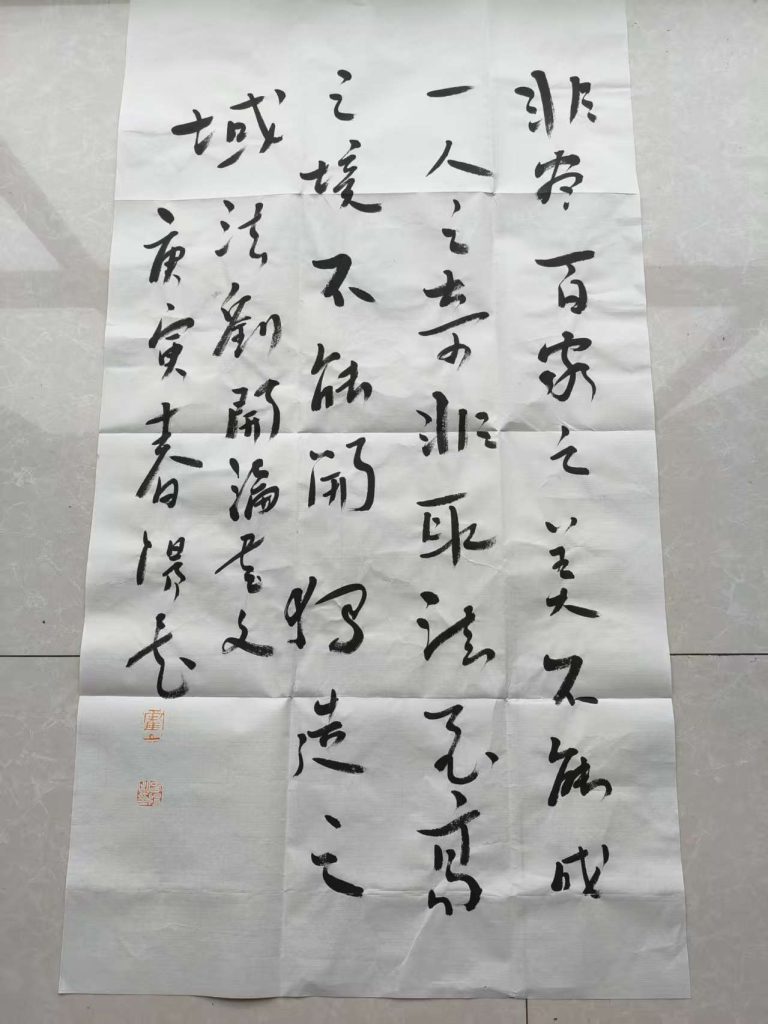 非尽百家之美不能成
一人之奇非取法至高
之境不能開独造之
域
劉開論文
庚寅春